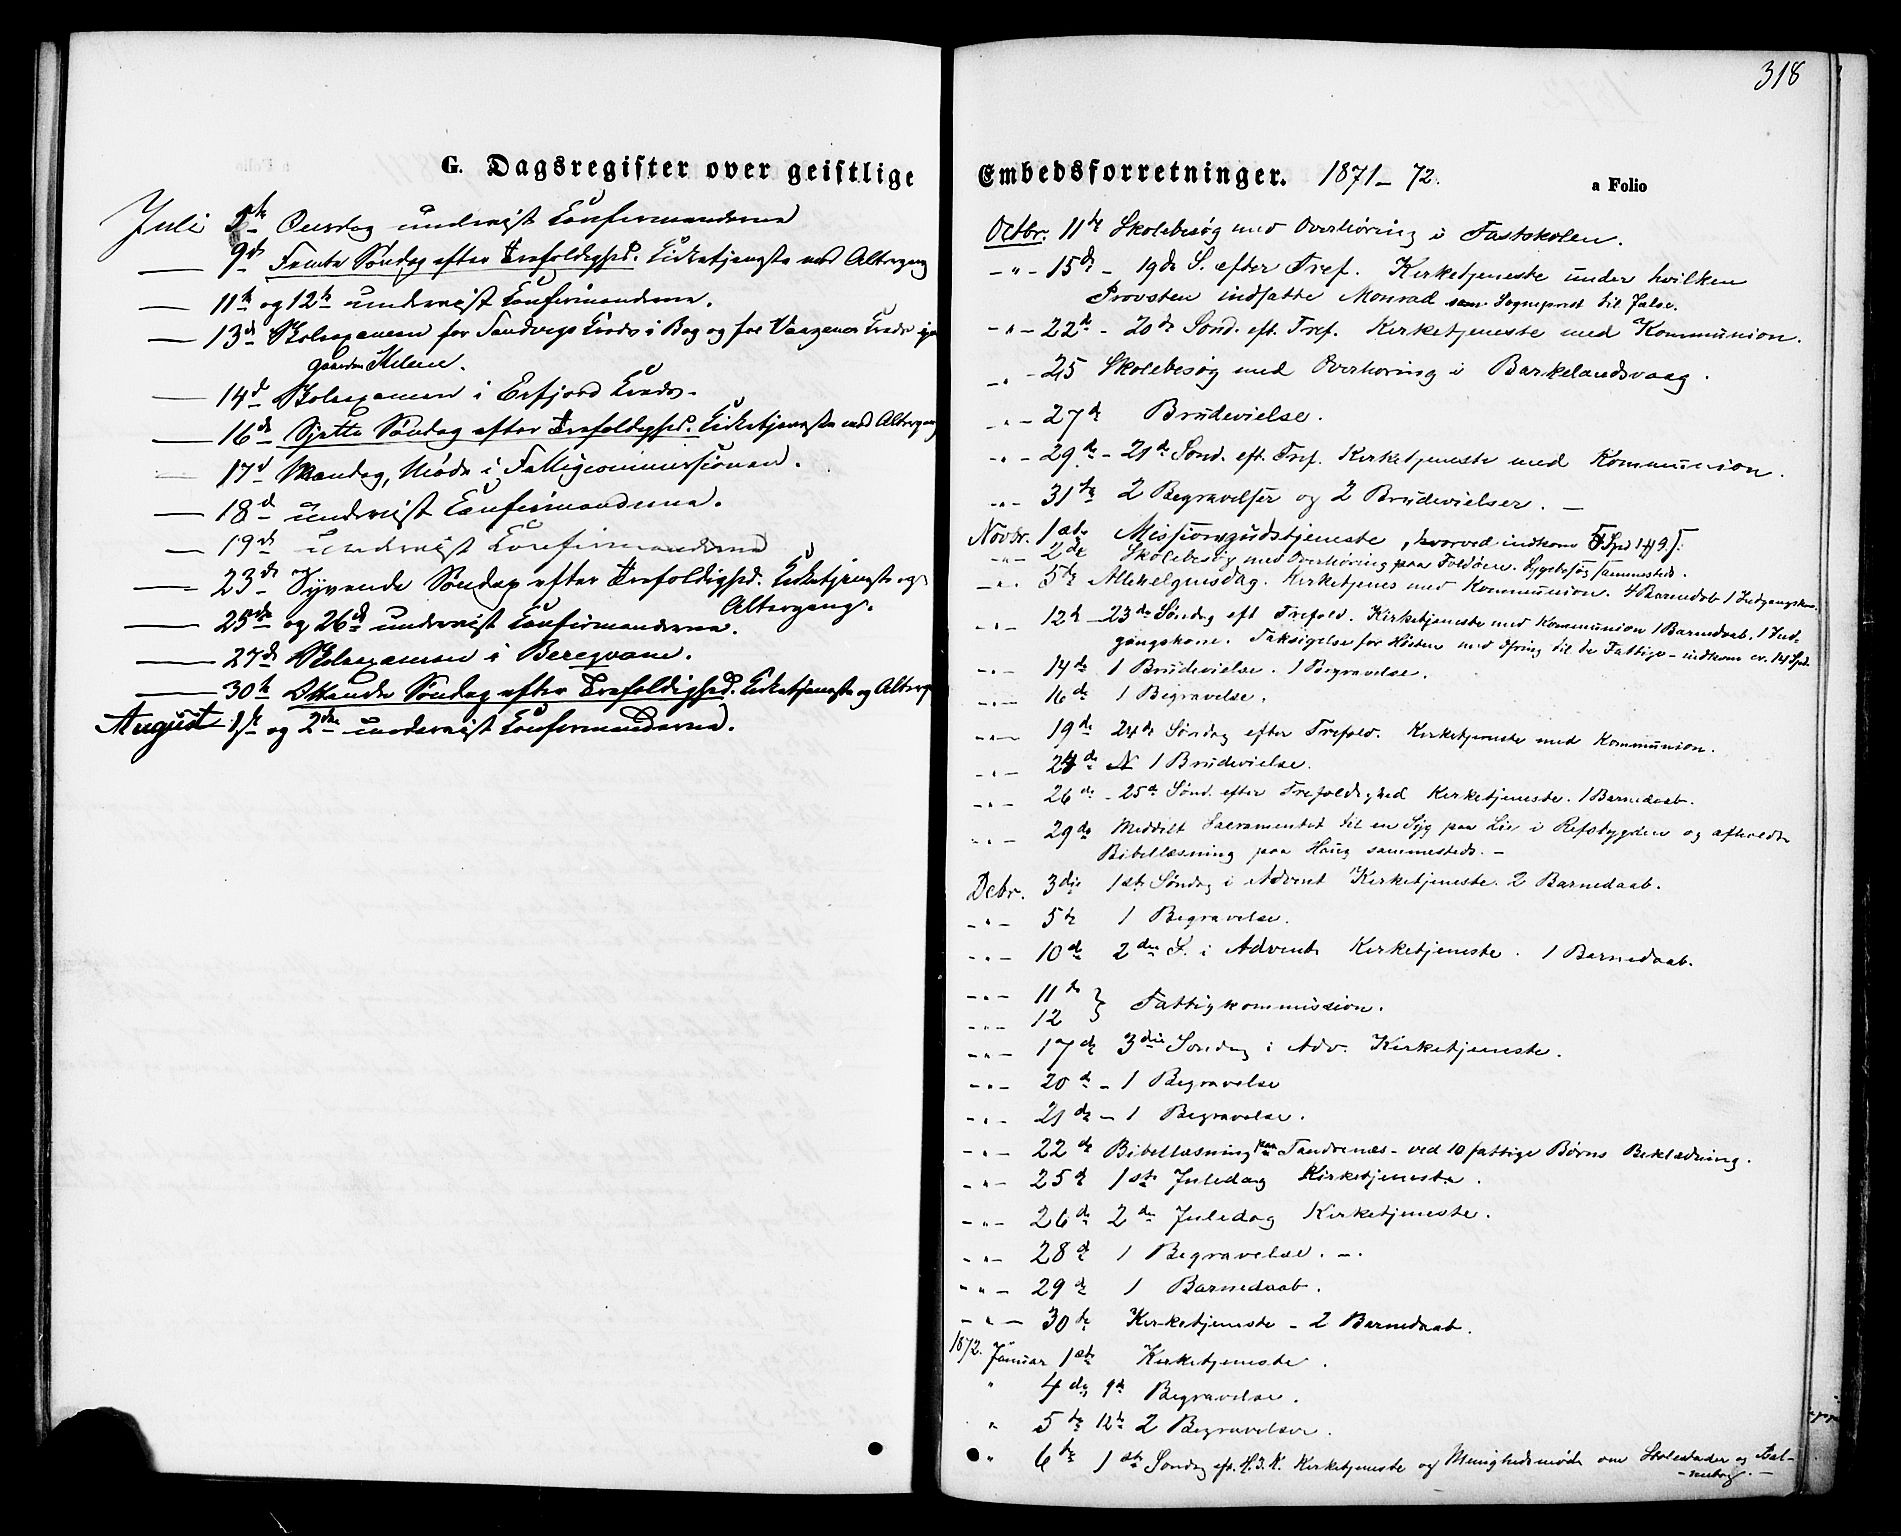 318
G. Dagsregister over geistlige
Juli 5te Onsdag undervist Confirmanderne
9de Femte Søndag efter Trefoldighed. Kirketjeneste med Altergang
11te og 12te undervist Confirmanderne.
13de Skoleexamen for Sandvigs Kreds i Bog og for Vaagenes Kreds i
Gaarden Helene.
14de Skoleexamen i Erfjord Kreds.
16de Sjette Søndag efter Trefoldighed. Kirketjeneste med Altergang
17de Mandag, Møde i Fattigcommissionen.
18de undervist Confirmanderne.
19de undervist Confirmanderne
23de Syvende Søndag efter Trefoldighed. Kirketjeneste og
Altergang.
25de og 26de undervist Confirmanderne.
27de Skoleexamen i
30te Ottende Søndag efter Trefoldighed. Kirketjeneste og Alterg
August 1ste og 2den undervist Confirmanderne.
Embedsforretninger. 1871-72.
a Folio
Octbr. 11te Skolebesøg med Overhøring i Fastskolen.
-"- 15de - 19de S. efter Tref. Kirketjeneste under hvilken
Provsten indsatte Monrad som Sogneprest til Jelse.
-"- 22de - 20de Sønd. eft. Tref. Kirketjeneste med Kommunion.
-"- 25 Skolebesøg med Overhøring i Barkelandsvaag.
-"- 27de Brudevielse.
-"- 29de - 21de Sønd. eft. Tref. Kirketjeneste med Kommunion.
-"- 31te 2 Begravelser og 2 Brudevielser. -
Novbr. 1ste Missionsgudstjeneste, hvorved indkom
-"- 2de Skolebesøg med Overhøring paa Foldøen. Sygebesøg sammesteds.
-"- 5te Allehelgensdag. Kirketjenes med Kommunion. 4 Barnedab 1 Indgangskone.
-"- 12te - 23de Søndag eft Trefold. Kirketjeneste med Kommunion 1 Barnedaab. 1 Ind-
gangskone. Taksigelse for Høsten med Ofring til de Fattige - indkom cr. 14 Spd.
-"- 14de 1 Brudevielse. 1 Begravelse.
-"- 16de 1 Begravelse.
-"- 19de 24de Søndag efter Trefold. Kirketjeneste med Kommunion.
-"- 24de 1 Brudevielse.
-"- 26de - 25de Sønd. efter Trefoldighed Kirketjeneste. 1 Barnedaab.
-"- 29de Meddelt Sacramentet til en Syg paa Lie i Refsbygden og afholdt
Bibellæsning paa Haug sammesteds. -
Decbr. 3die 1ste Søndag i Advent Kirketjeneste. 2 Barnedaab.
-"- 5te 1 Begravelse.
-"- 10de 2den S. i Advent Kirketjeneste. 1 Barnedaab.
-"- 11te }
-"- 12 } Fattigkommission.
-"- 17de 3die Søndag i Adv. Kirketjeneste.
-"- 20de - 1 Begravelse
-"- 21de - 1 Begravelse.
-"- 22de Bibellæsning paa Sandsnæs - ved 10 fattige Børns Beklædning.
-"- 25de 1ste Juledag Kirketjeneste.
-"- 26de 2den Juledag Kirketjeneste.
-"- 28de 1 Begravelse. -.
-"- 29de 1 Barnedaab.
-"- 30te Kirketjeneste - 2 Barnedaab.
1872. Januar 1ste Kirketjeneste.
" 4de Begravelse.
" 5te 2 Begravelser.
" 6te 1ste Søndag eft. H.3.K. Kirketjeneste og Menighedsmøde om Skolesteder og